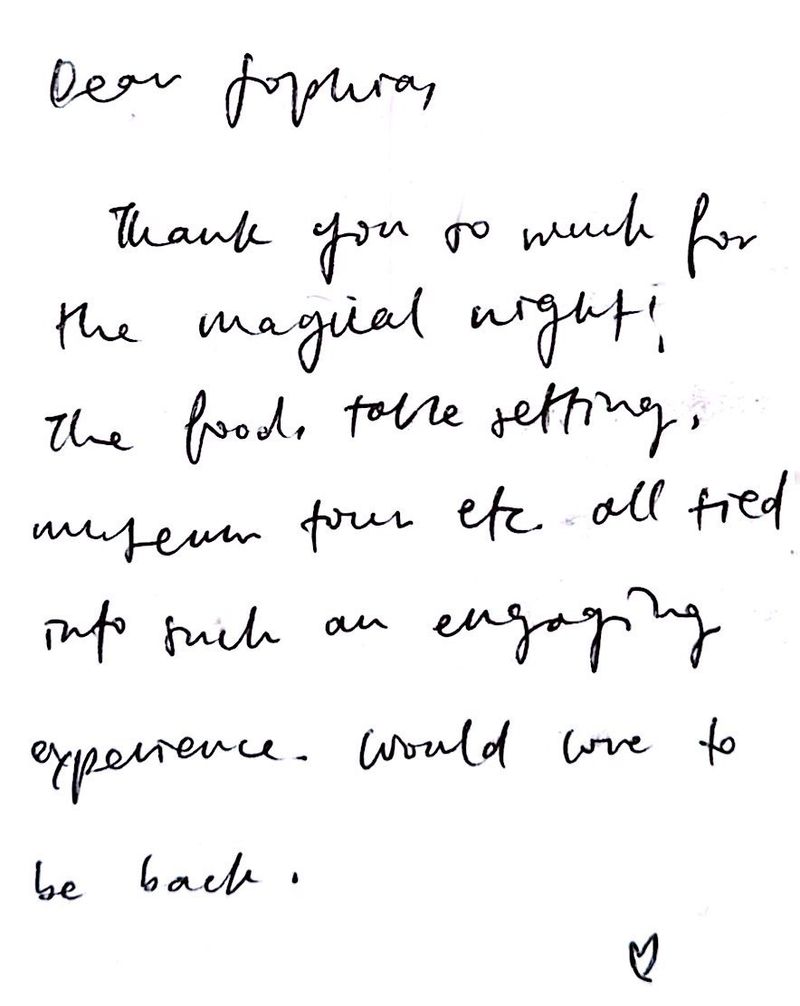 Dear Sophia,
Thank you so much for
the magical night!
The food, table setting,
museum tour etc. all tied
into such an engaging
experience. Would love to
be back.